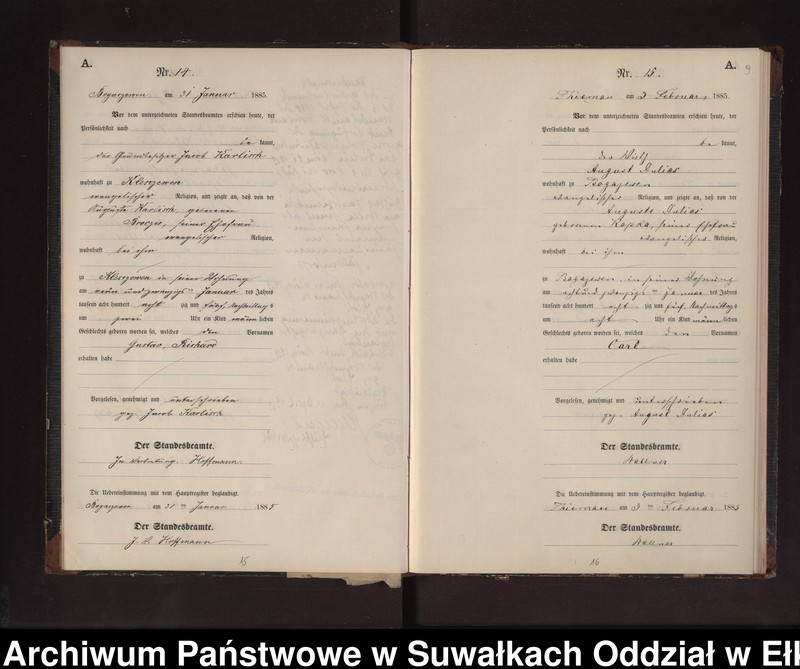 A.
Nr. 14.
am 31 Januar 1885.
Vor dem unterzeichneten Standesbeamten erschien heute, der
Persönlichkeit nach
be kannt,
der Grundbesitzer Jacob Karlisch
wohnhaft zu
evangelischer Religion, und zeigte an, daß von der
Auguste Karlisch, geborenen
seiner Ehefrau
evangelischer Religion,
wohnhaft bei ihm
zu in seiner Wohnung
am neun und zwanzigsten Januar des Jahres
tausend acht hundert acht zig und fünf, Nachmittags
um zwei Uhr ein Kind männ lichen
Geschlechts geboren worden sei, welches den Vornamen
Gustav, Richard
erhalten habe
Vorgelesen, genehmigt und unterschrieben
gez. Jacob Karlisch
Der Standesbeamte.
In Vertretung. Hoffmann.
Die Uebereinstimmung mit dem Hauptregister beglaubigt.
am 31 ten Januar 1885
Der Standesbeamte.
Hoffmann
15
A.
9
Nr. 15.
am 3 Februar 1885.
Vor dem unterzeichneten Standesbeamten erschien heute, der
Persönlichkeit nach
be kannt,
der Wirth
August
wohnhaft zu Rogazewen
evangelischer Religion, und zeigte an, daß von der
Auguste
geborenen Kopka, seiner Ehefrau
evangelischer Religion,
wohnhaft bei ihm
zu Rogazewen, in seiner Wohnung
am acht und zwanzigsten Januar des Jahres
tausend acht hundert acht zig und fünf, Nachmittags
um acht Uhr ein Kind männ lichen
Geschlechts geboren worden sei, welches den Vornamen
Carl
erhalten habe
Vorgelesen, genehmigt und unterschrieben
gez. August
Der Standesbeamte.
Wallner
Die Uebereinstimmung mit dem Hauptregister beglaubigt.
am 3 ten Februar 1885
Der Standesbeamte.
Wallner
16
Archiwum Państwowe w Suwałkach Oddział w Eł